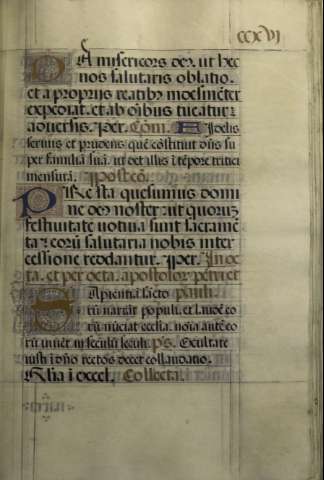 ccxvi
Da misericors deꝰ. ut hec
nos salutaris oblatio.
et a proprijs reatibꝰ indesinẽter
expediat. et ab oĩbus tueatur
aduersis. Per. Cõm. Fidelis
seruus et prudens quẽ cõstituit dñs su
per familiã suã. ut det illis ĩ tẽpore tritici
mensurã. Postcõ.
Pijs. esta quesumus domi
ne deꝰ noster: ut quoruʒ
festiuitate uotiua sunt sacramẽ
ta: eorũ salutaria nobis inter
cessione reddantur. Per. In oc
ta. et per octa. apostolor petri et
Sapientiã sãctoꝝ pauli.
rũ narrãt populi. et laudẽ eo
rũ nũciat ecclesia. noĩa autẽ eo
rũ uiuẽt in seculũ seculi. ps. Exultate
iusti ĩ dño rectos decet collaudatio.
Glia ĩ excel. Collecta.